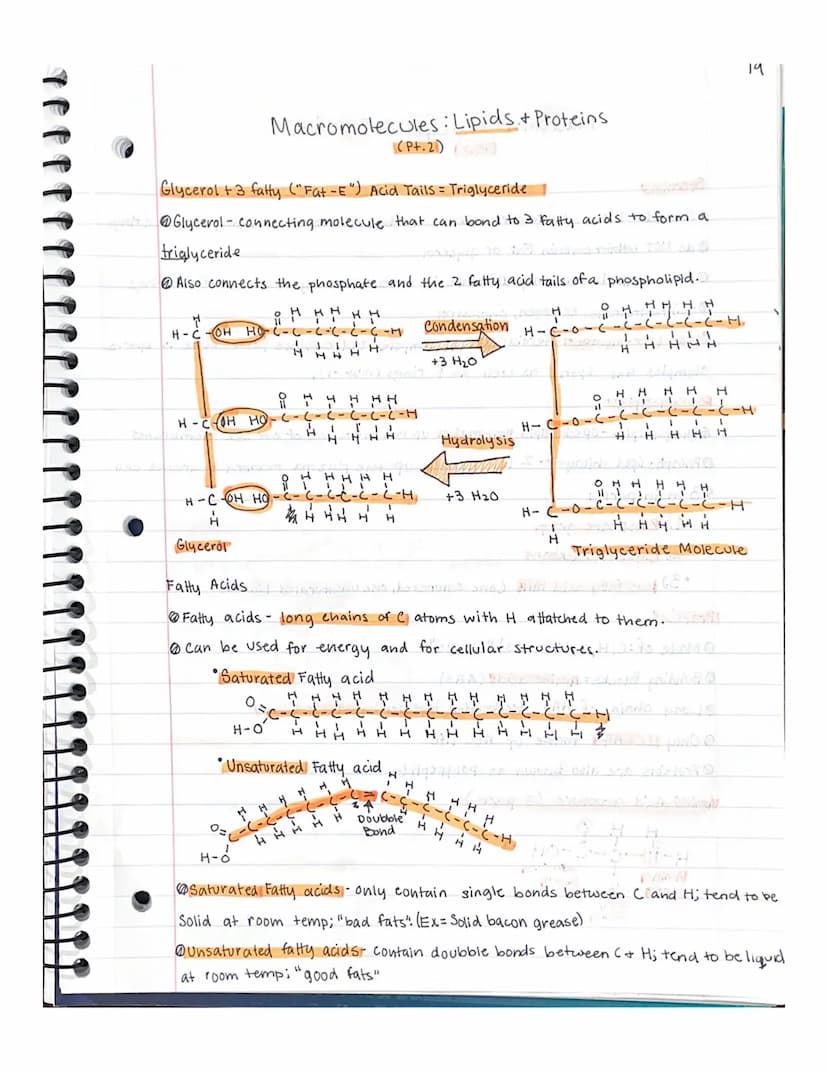 19
Macromolecules: Lipids + Proteins
(Pt.2)
Glycerol + 3 fatty ("Fat-E") Acid Tails = Triglyceride
Glycerol - connecting molecule that can bond to 3 Fatty acids to form a
triglyceride
Also connects the phosphate and the 2 fatty acid tails of a phospholipid.
H-C-OH HO-C-C-C-C-C-C-H
Condensation
+3 H2O
H-C-O-C-C-C-C-C-C-H
H-C-OH HO-C-C-C-C-C-C-H
Hydrolysis
+3 H2O
H-C-O-C-C-C-C-C-C-H
H-C-OH HO-C-C-C-C-C-C-H
H-C-O-C-C-C-C-C-C-H
Glycerol
Triglyceride Molecule
Fatty Acids
Fatty acids - long chains of C atoms with H attatched to them.
Can be used for energy and for cellular structures.
• Saturated Fatty acid
H-O
• Unsaturated Fatty acid
Doubble
Bond
H-O
Saturated Fatty acids - only contain single bonds between C and H; tend to be
Solid at room temp; "bad fats". (Ex= Solid bacon grease)
Unsaturated fatty acids- contain doubble bonds between C + H; tend to be liquid
at room temp; "good fats"